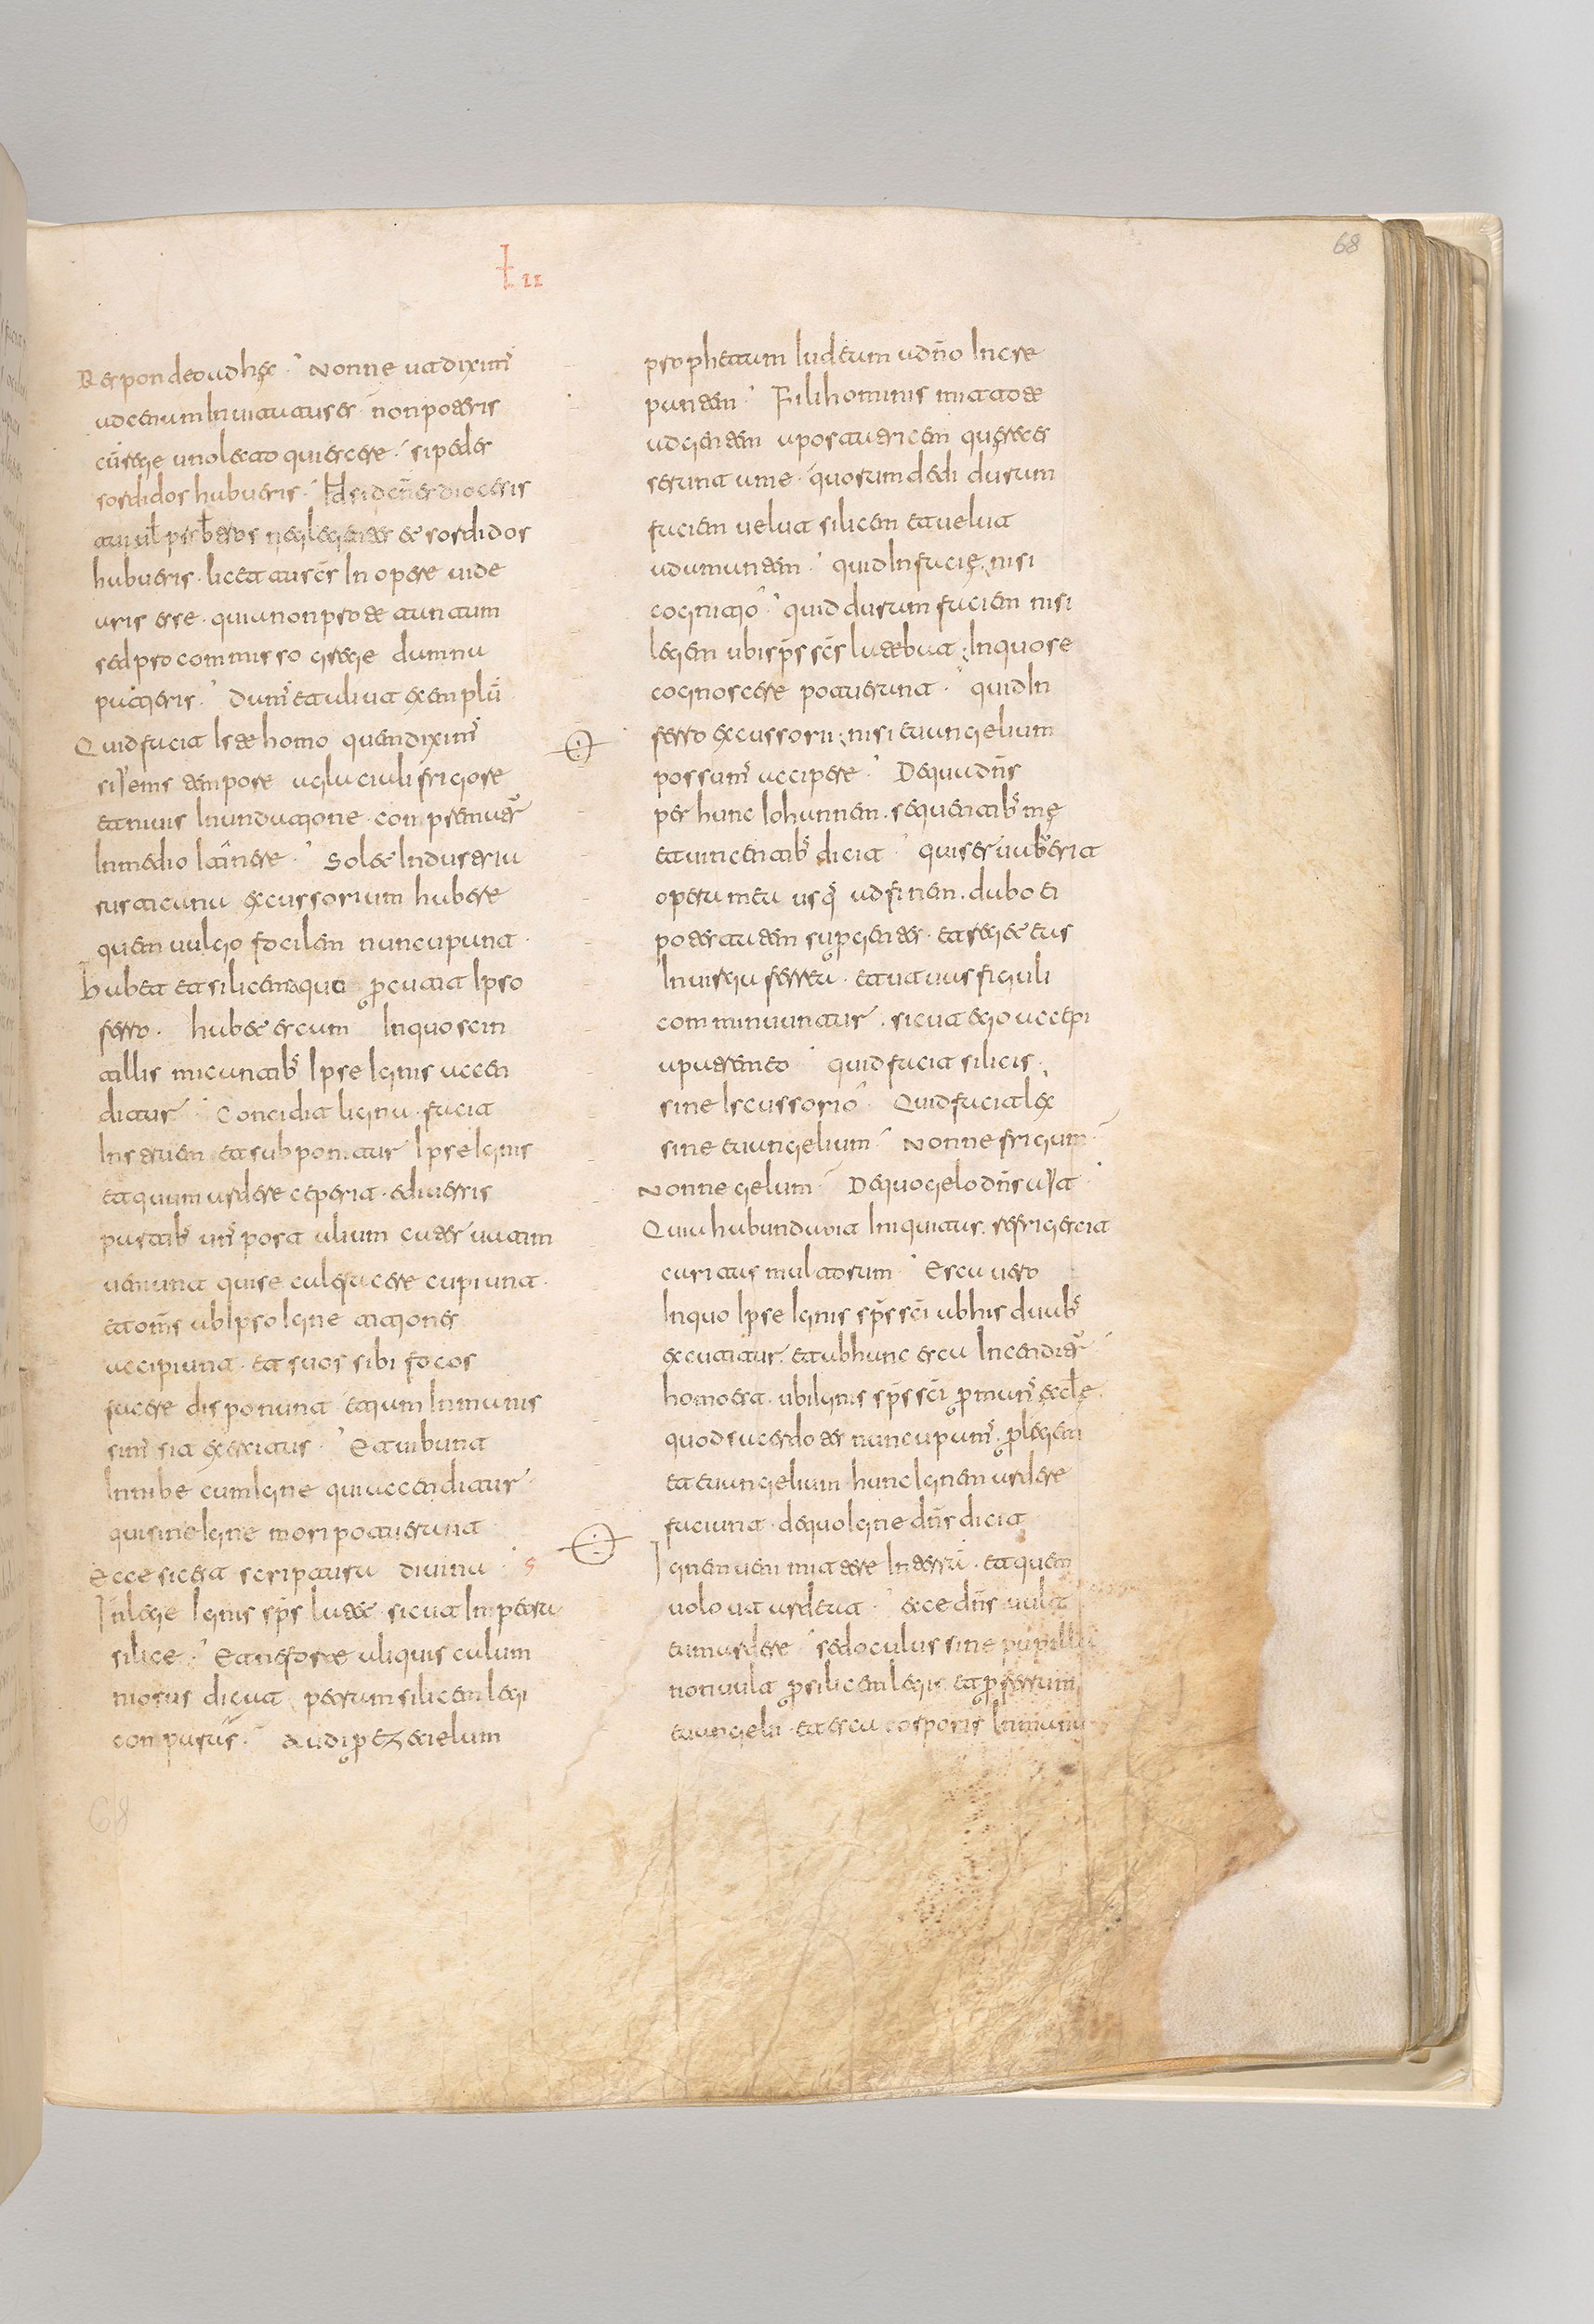 Lii
68
Respondeo ad hec. Nonne ut diximꝰ
ad cenam Inuitatus es. non poteris
cū rege uno lecto quiescere. si pedes
sordidos habueris. Id si
aut ul presbrteros neglegentes et sordidos
habueris. licet tu scs In opere uide
aris esse. quia non pro te tantum
sed pro commisso grege damna
patieris. Dumꝰ et aliut exemplū
Quid facit Iste homo quem diximꝰ
si yemis tempore glaciali frigore
et niuis Inundatione compremuatr
In medio Itinere. Solet Industria
rusticana excussorium habere
quem uulgo focilem nuncupant.
habet et silicem a quo ꝑcutit Ipso
ferro. habet escam In quo scin
tillis micantibꝰ Ipse Ignis accen
ditur. Concidit ligna. facit
Instruem et subponitur Ipse Ignis
et quum ardere ceperit. e diuersis
partibꝰ unꝰ post alium cateruatim
ueniunt qui se calefacere cupiunt.
et omns ab Ipso Igne titiones
accipiunt. et suos sibi focos
facere disponunt et quum Inmanis
simꝰ sit exercitus. Et uibunt
In nibe cum Igne qui accenditur
qui sine Igne mori potuerunt
Ecce sic est scriptura diuina. s
In lege Ignis sps latet. sicut In petra
silice. Et ne forte aliquis calum
niosus dicat petram silicem legi
conparas. Audi ꝑ Ezecielum
prophetam Iudeum a dno Incre
pantem. Fili hominis mitto te
ad gentem apostatricem que reces
serunt a me. quorum dedi duram
faciem uelut silicem et uelut
adamantem. quid In facie; nisi
cognitio. quid duram faciem nisi
legem ubi sps scs latebat; In quo se
cognoscere potuerunt. quid In
ferro excussorii; nisi euangelium
possumꝰ accipere. De qua dns
per hunc Iohannem. sequentibꝰ me
et uincentibꝰ dicit qui seruauberit
opera mea usq ad finem. dabo ei
potestatem super gentes. et reget eas
In uirga ferrea. et ut uas figuli
comminuuntur. sicut ego accepi
a patre meo quid facit silicis;
sine Iscussorio. Quid facit lex
sine euangelium. Nonne frigum.
Nonne gelum. De quo gelo dns ayt
Quia habundauit Iniquitas. refrigescit
caritas multorum. Esca uero
In quo Ipse Ignis sps sci ab his duabꝰ
excutitur. et ab hunc esca Incenditr
homo est. ubi Ignis sps sci ꝑ manꝰ eccle
quod sacerdotes nuncupamꝰ. ꝑ legem
et euangelium hunc Ignem ardere
faciunt. de quo Igne dns dicit
Ignem ueni mittere In terra. et quem
uolo ut ardeat. ecce dns uult
eum ardere sed oculus sine pupilla
non uult ꝑ silicem legis et ꝑ ferrum
euangelii. et esca corporis
68